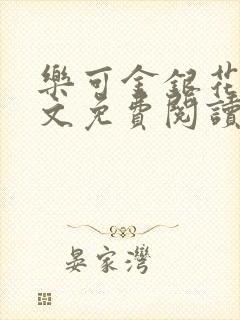 樂可金銀花
文免費閱讀
晏家灣